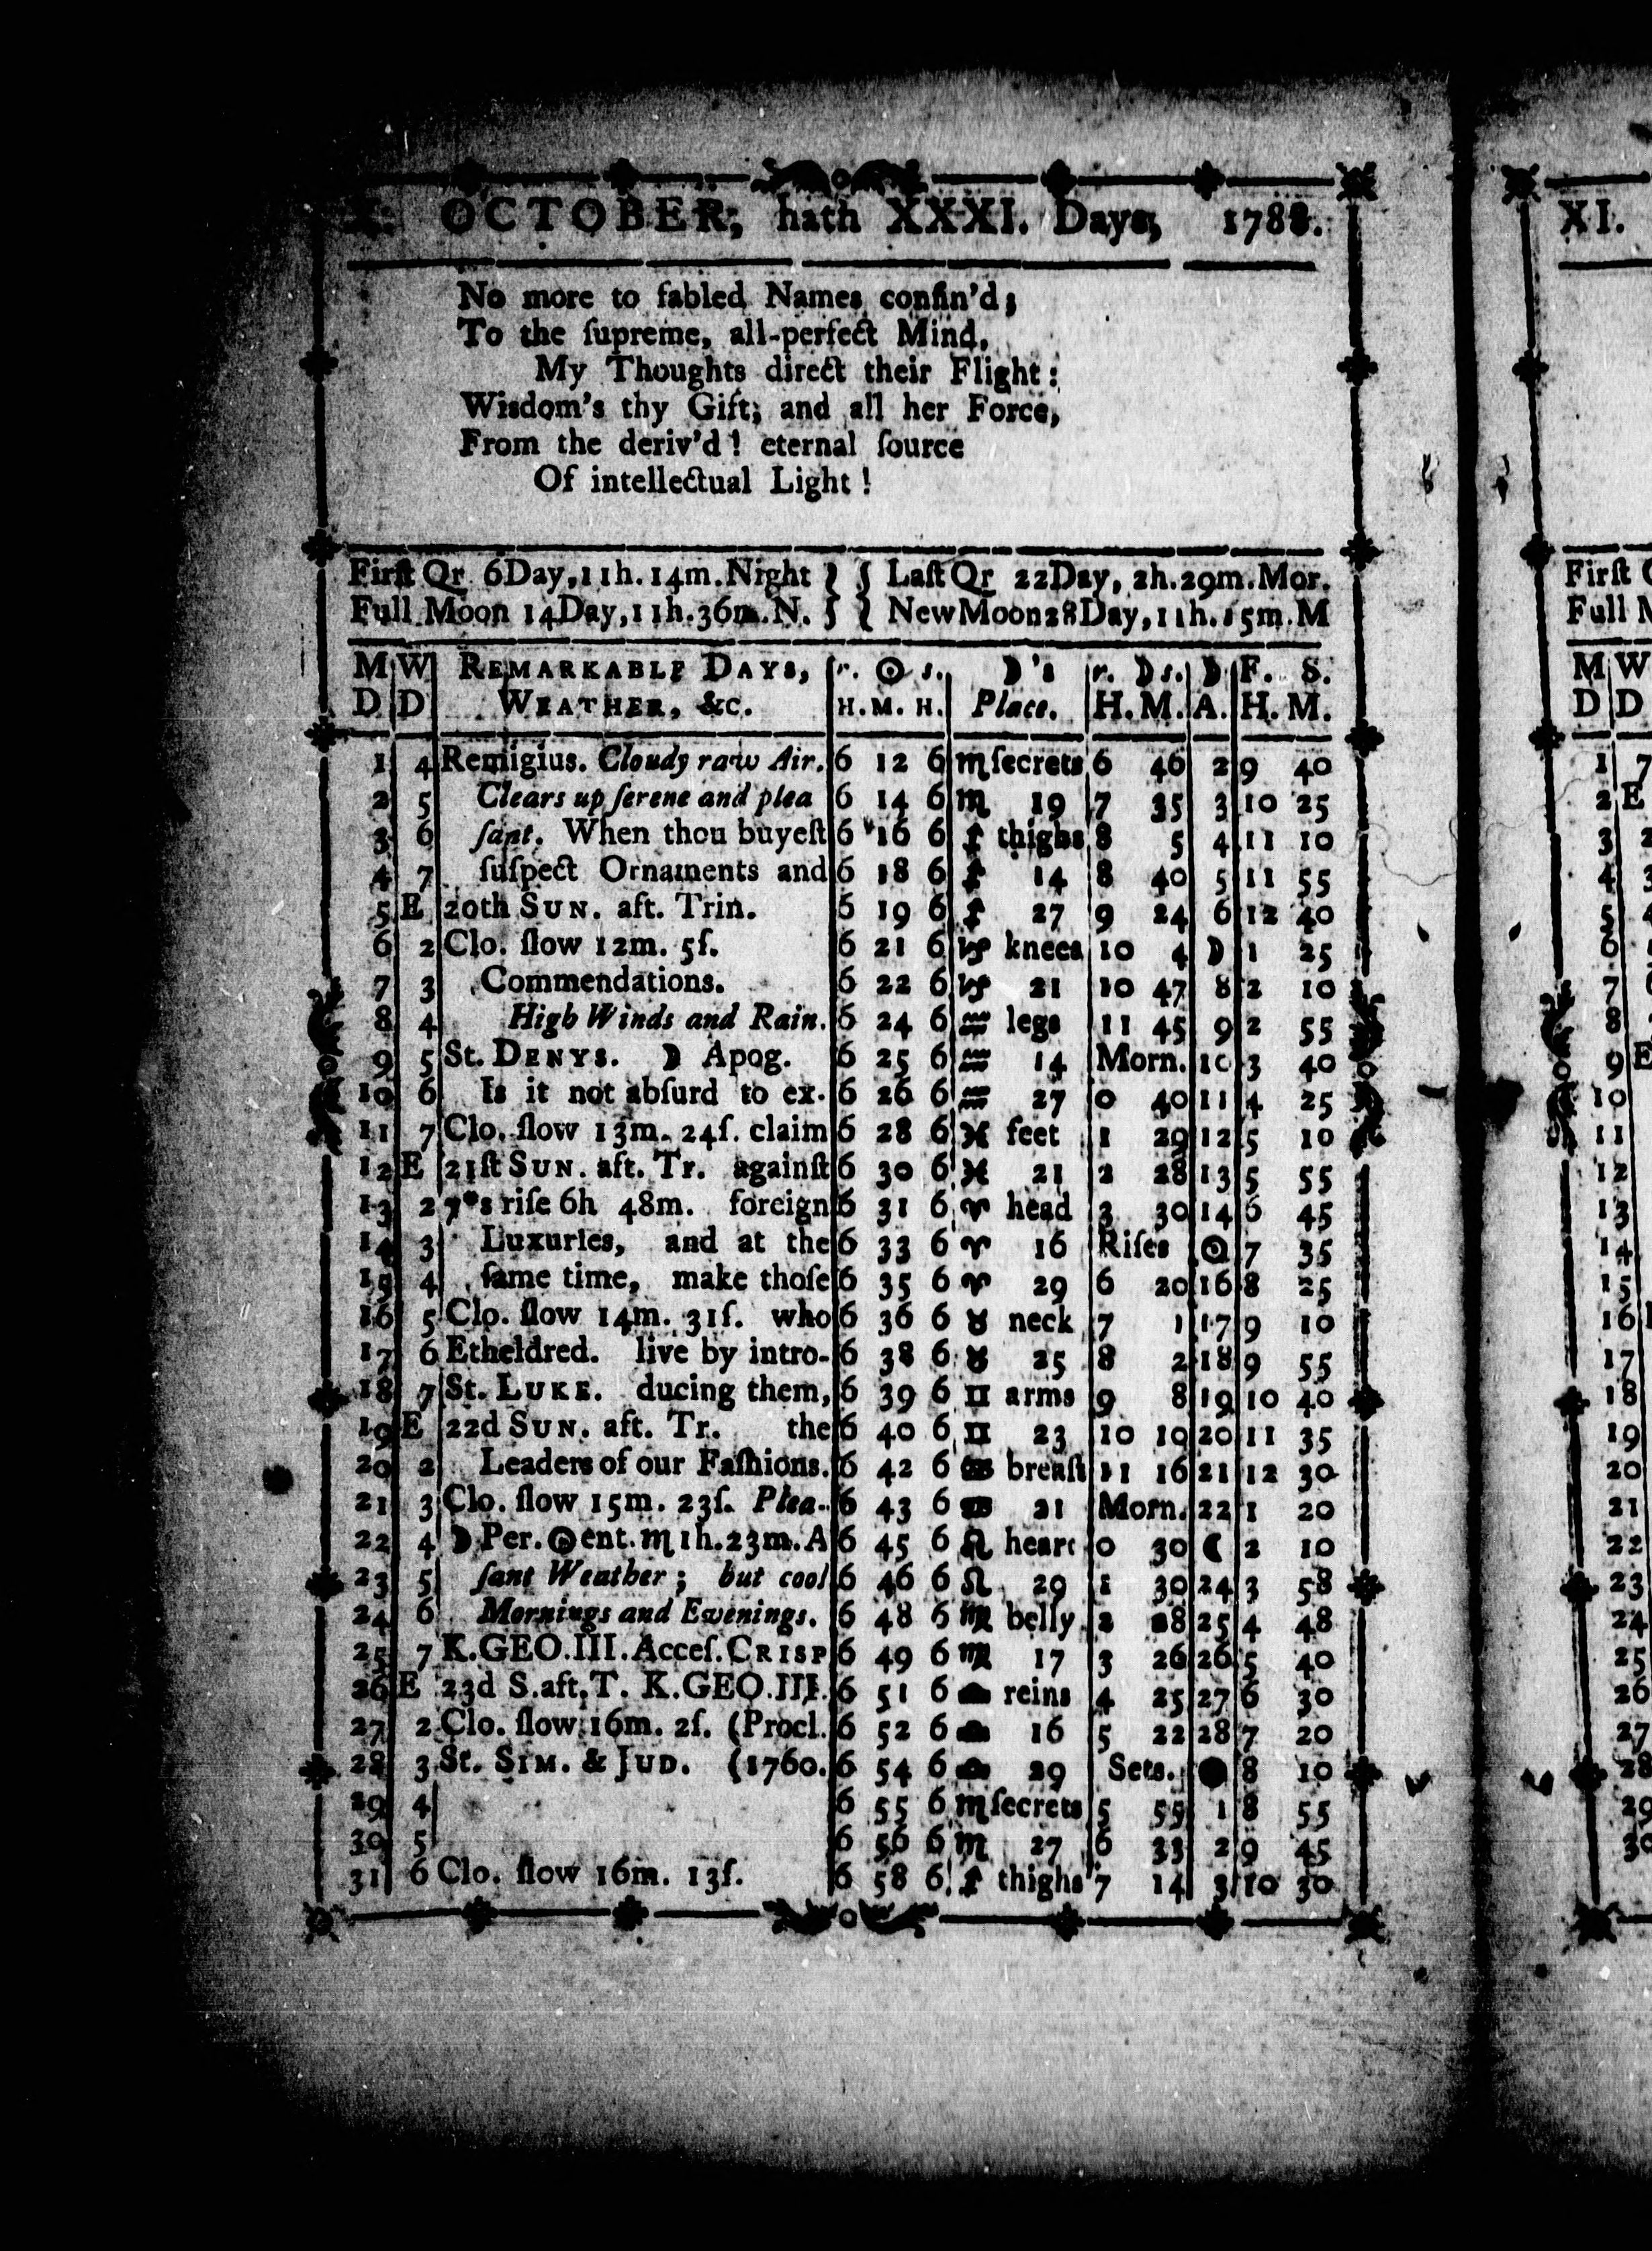 X. OCTOBER, hath XXXI. Days, 1788.
No more to fabled Names confin'd;
To the ſupreme, all-perfect Mind,
My Thoughts direct their Flight:
Wisdom's thy Gift; and all her Force,
From the deriv'd! eternal ſource
Of intellectual Light!
Firſt Qr 6Day, 11h. 14m. Night } { Laſt Qr 22Day, 2h. 29m. Mor.
Full Moon 14Day, 11h. 36m. N. } { New Moon 28Day, 11h. 15m. M
M W REMARKABLE DAYS, r. ☉ s. ☽'s r. ☽ s. ☽ F. S.
D D WEATHER, &c. H. M. H. Place. H. M. A. H. M.
1 4 Remigius. Cloudy raw Air. 6 12 6 ♏ ſecrets 6 46 2 9 40
2 5 Clears up ſerene and plea 6 14 6 ♏ 19 7 35 3 10 25
3 6 ſant. When thou buyeſt 6 16 6 ♐ thighs 8 5 4 11 10
4 7 ſuſpect Ornaments and 6 18 6 ♐ 14 8 40 5 11 55
5 E 20th SUN. aft. Trin. 6 19 6 ♐ 27 9 24 6 12 40
6 2 Clo. ſlow 12m. 5ſ. 6 21 6 ♑ knees 10 4 ☽ 1 25
7 3 Commendations. 6 22 6 ♑ 21 10 47 8 2 10
8 4 High Winds and Rain. 6 24 6 ♒ legs 11 45 9 2 55
9 5 St. DENYS. ☽ Apog. 6 25 6 ♒ 14 Morn. 10 3 40
10 6 Is it not abſurd to ex- 6 26 6 ♒ 27 0 40 11 4 25
11 7 Clo. ſlow 13m. 24ſ. claim 6 28 6 ♓ feet 1 29 12 5 10
12 E 21ſt SUN. aft. Tr. againſt 6 30 6 ♓ 21 2 28 13 5 55
13 2 7*s riſe 6h 48m. foreign 6 31 6 ♈ head 3 30 14 6 45
14 3 Luxuries, and at the 6 33 6 ♈ 16 Riſes ☉ 7 35
15 4 ſame time, make thoſe 6 35 6 ♈ 29 6 20 16 8 25
16 5 Clo. ſlow 14m. 31ſ. who 6 36 6 ♉ neck 7 1 17 9 10
17 6 Etheldred. live by intro- 6 38 6 ♉ 25 8 2 18 9 55
18 7 St. LUKE. ducing them, 6 39 6 ♊ arms 9 8 19 10 40
19 E 22d SUN. aft. Tr. the 6 40 6 ♊ 23 10 19 20 11 35
20 2 Leaders of our Faſhions. 6 42 6 ♋ breaſt 11 16 21 12 30
21 3 Clo. ſlow 15m. 23ſ. Plea- 6 43 6 ♋ 21 Morn. 22 1 20
22 4 ☽ Per. ☉ ent. ♏ 1h. 23m. A 6 45 6 ♌ heart 0 30 ☾ 2 10
23 5 ſant Weather; but cool 6 46 6 ♌ 29 1 30 24 3 58
24 6 Mornings and Evenings. 6 48 6 ♍ belly 2 28 25 4 48
25 7 K. GEO. III. Acceſ. CRISP 6 49 6 ♍ 17 3 26 26 5 40
26 E 23d S. aft. T. K. GEO. III. 6 51 6 ♎ reins 4 25 27 6 30
27 2 Clo. ſlow 16m. 2ſ. (Procl. 6 52 6 ♎ 16 5 22 28 7 20
28 3 St. SIM. & JUD. (1760. 6 54 6 ♎ 29 Sets. ● 8 10
29 4 6 55 6 ♏ ſecrets 5 59 1 8 55
30 5 6 56 6 ♏ 27 6 33 2 9 45
31 6 Clo. ſlow 16m. 13ſ. 6 58 6 ♐ thighs 7 14 3 10 30
XI.
Firſt
Full
M W
D D
1 7
2 E
3
4
5
6
7
8
9 E
10
11
12
13
14
15
16
17
18
19
20
21
22
23
24
25
26
27
28
29
30